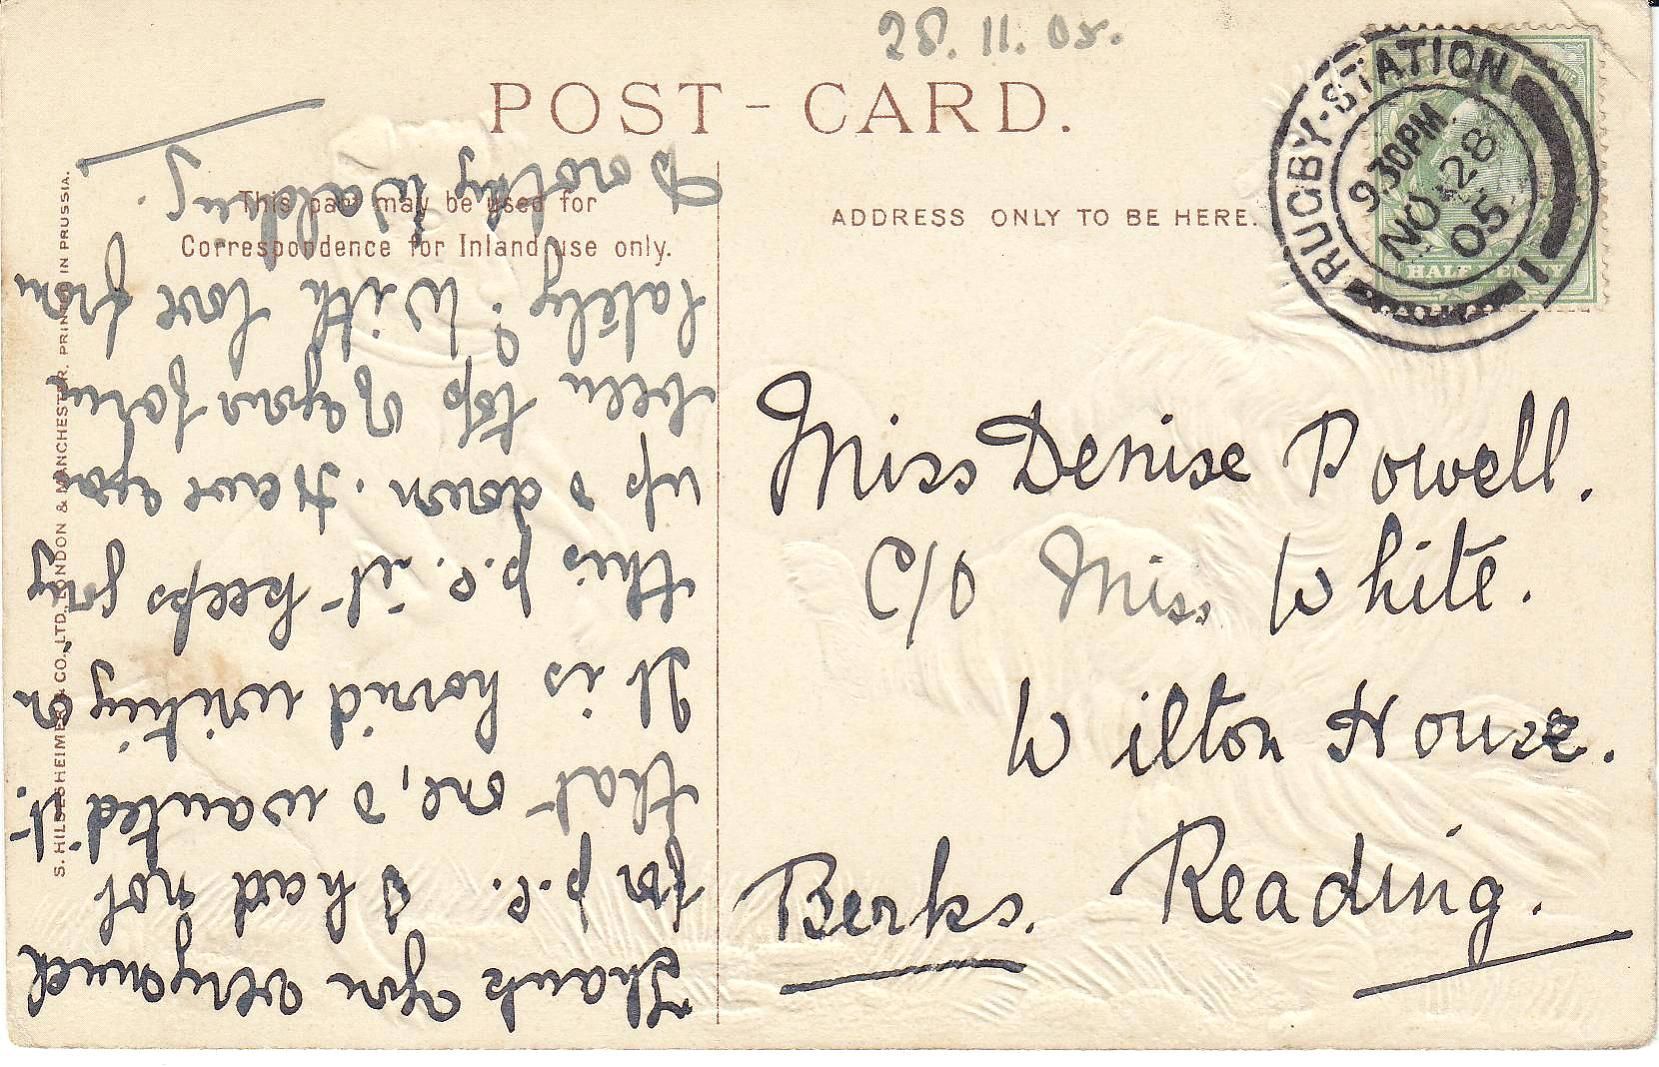 28.11.05.
POST-CARD.
This part may be used for
Correspondence for Inland use only.
ADDRESS ONLY TO BE HERE.
RUGBY·STATION
9.30PM
NO 28
05
1
HALFPENNY
Miss Denise Powell.
C/O Miss White.
Wilton House.
Reading.
Berks.
Thank you very much
for p.c. I had not
that one, & wanted it.
It is horrid writing on
this p.c. it keeps going
up & down. Have you
been top of your form
lately? With love from
Dorothy
S. HILDESHEIMER & CO., LTD. LONDON & MANCHESTER. PRINTED IN PRUSSIA.